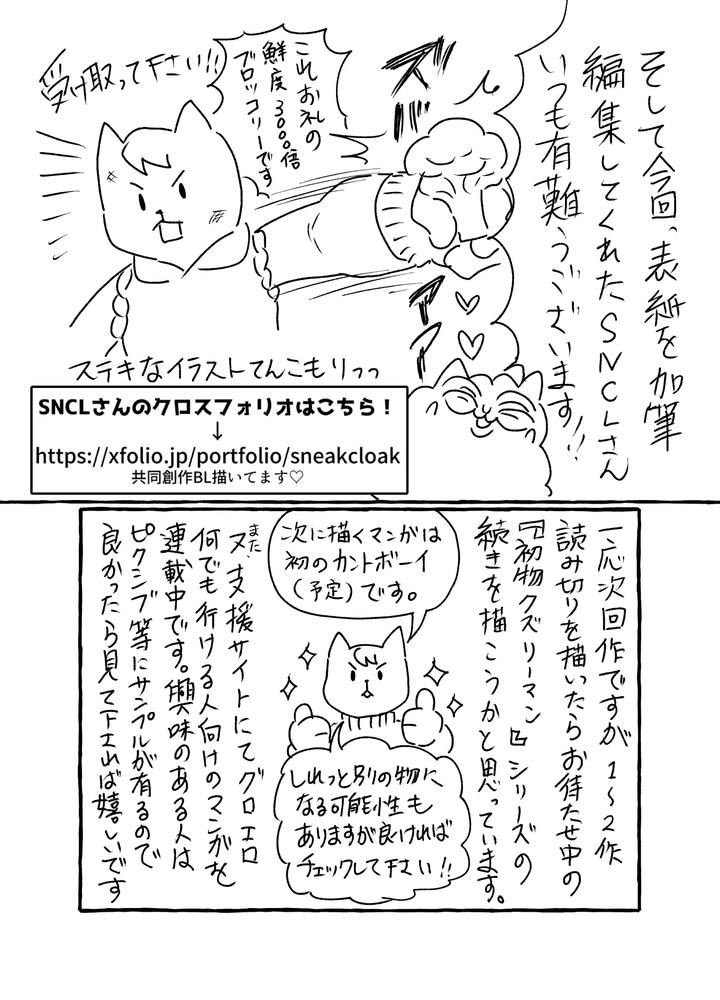 そして今回、表紙を加筆
編集してくれたSNCLさん
いつも有難うございます!!
ズ
バ
ァ
ァ
これお礼の
鮮度3000倍
ブロッコリーです
受け取って下さい!!
ステキなイラストてんこもりっっ
SNCLさんのクロスフォリオはこちら!
↓
https://xfolio.jp/portfolio/sneakcloak
共同創作BL描いてます♡
一応次回作ですが1~2作
読み切りを描いたらお待たせ中の
『初物クズリーマン』シリーズの
続きを描こうかと思っています。
次に描くマンガは
初のカントボーイ
(予定)です。
しれっと別の物に
なる可能性も
ありますが良ければ
チェックして下さい!!
また
又、支援サイトにてグロエロ
何でも行ける人向けのマンガを
連載中です。興味のある人は
ピクシブ等にサンプルが有るので
良かったら見て下されば嬉しいです